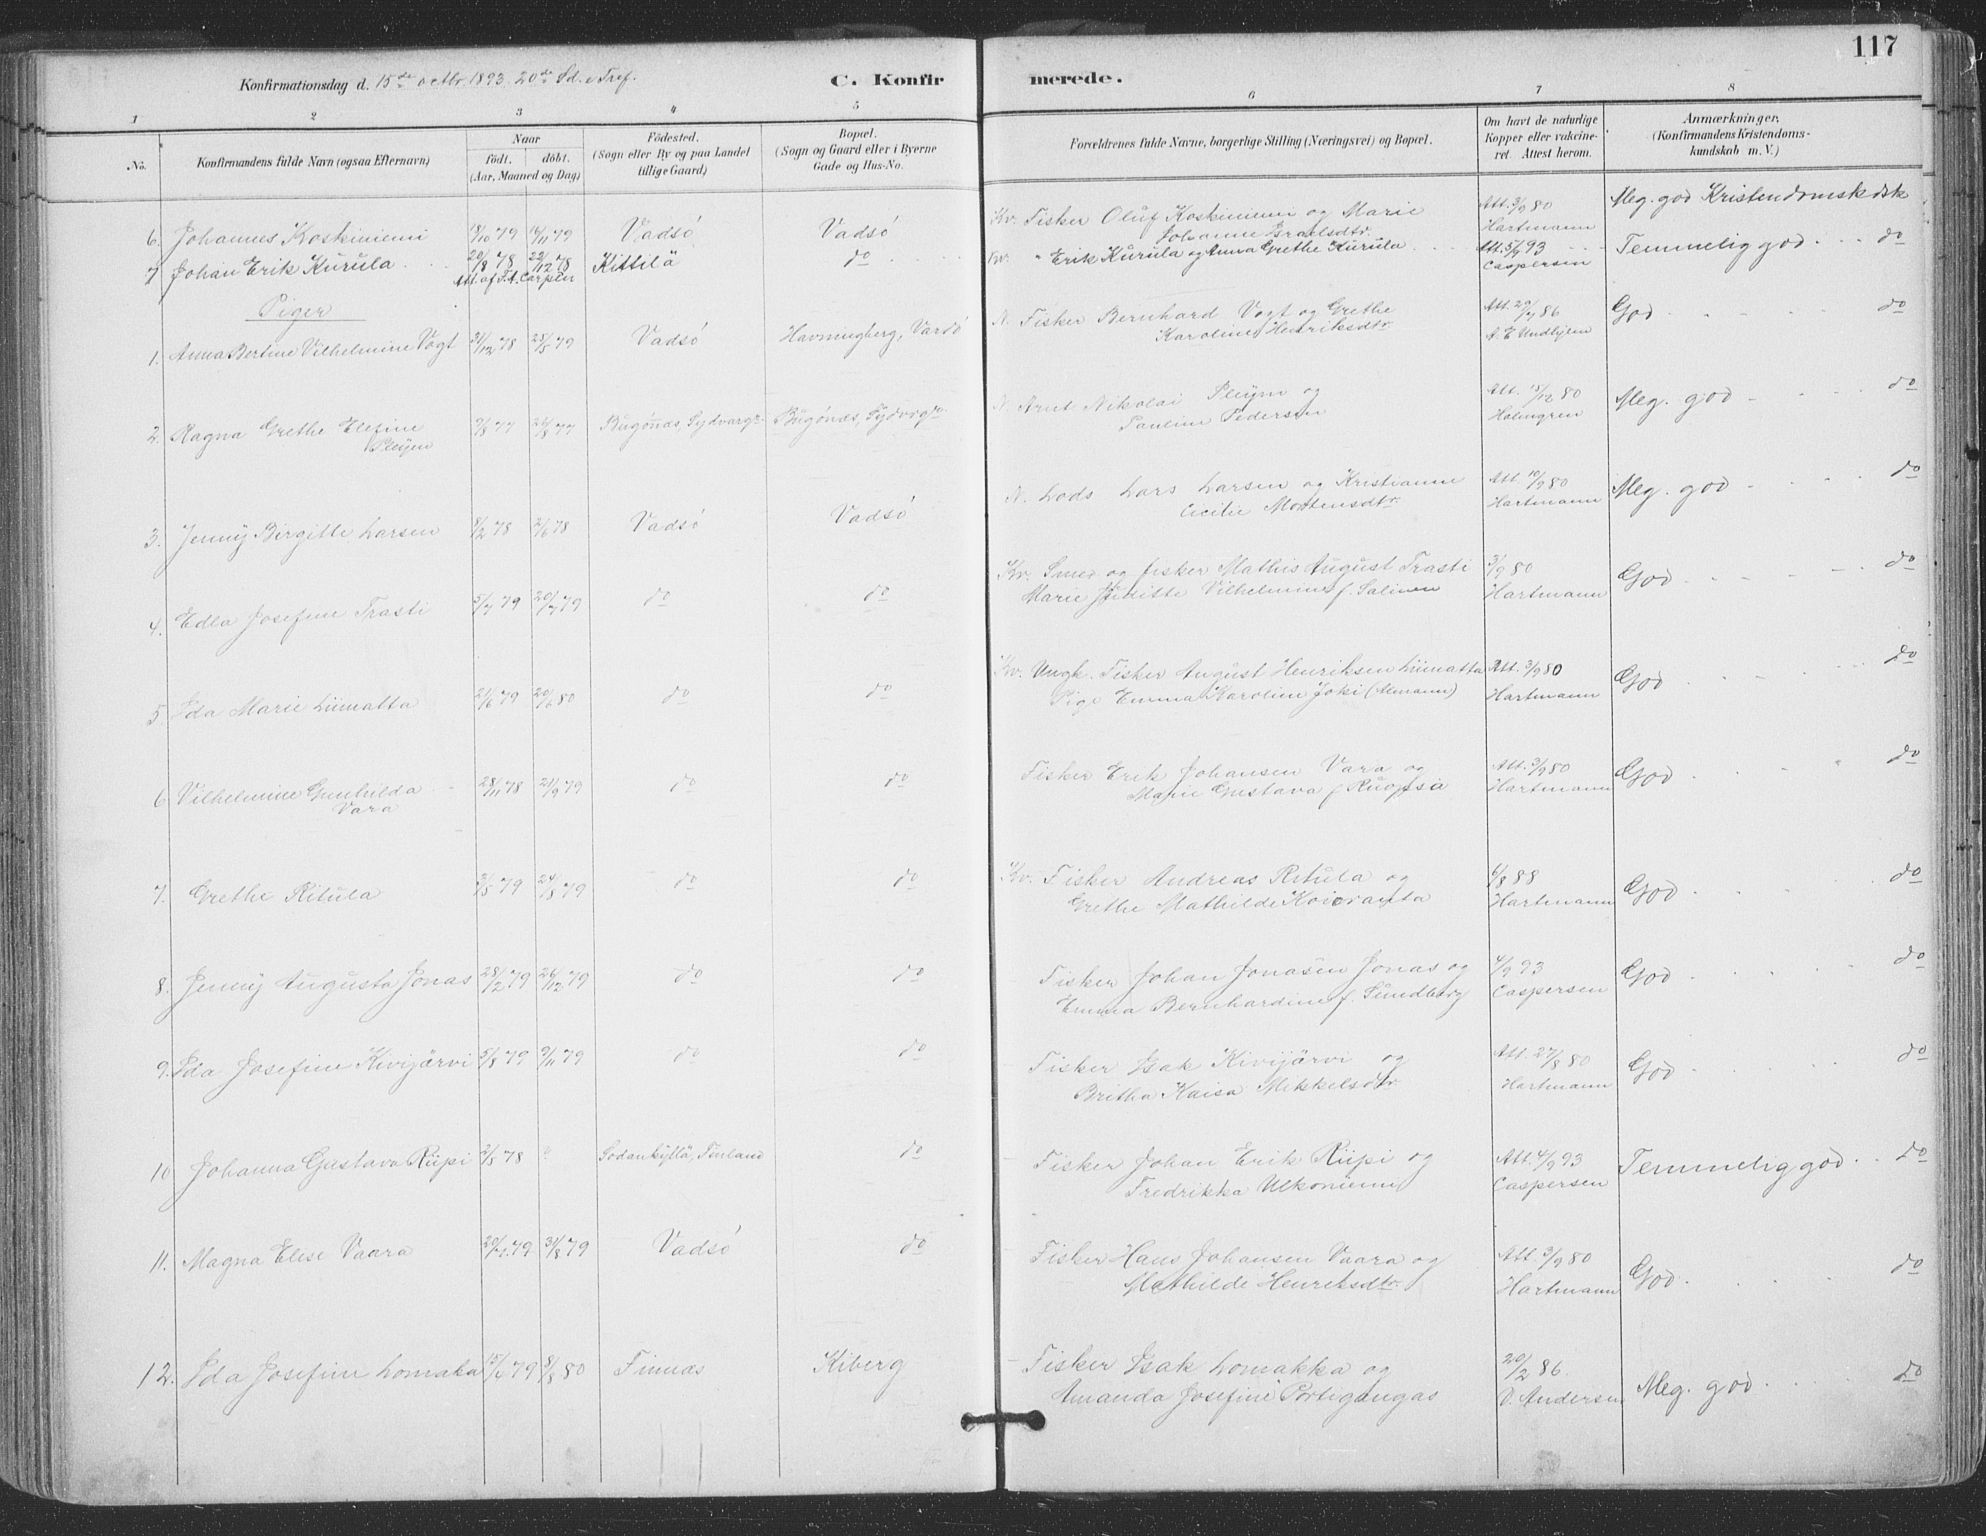 117
Konfirmationsdag d. 15de octbr. 1893. 20de Sd. e. Tref. C. Konfirmerede.
1 2 3 4 5 6 7 8
No. Konfirmandens fulde Navn (ogsaa Efternavn) Naar födt. döbt. (Aar, Maaned og Dag) Födested. (Sogn eller By og paa Landet tillige Gaard) Bopæl. (Sogn og Gaard eller i Byerne Gade og Hus-No. Forældrenes fulde Navne, borgerlige Stilling (Næringsvei) og Bopæl. Om havt de naturlige Kopper eller vakcineret. Attest herom. Anmærkninger. (Konfirmandens Kristendomskundskab m. V.)
6. Johannes Koskiniemi 18/10 79 16/11 79 Vadsö Vadsö Kv. Fisker Oluf Koskiniemi og Marie Att. 3/9 80 Meg. god Kristendomskdsk
Johanne Israelsdtr. Hartmann
7 Johan Erik Kurula 20/8 78 22/12 78 Kittilä do Kv. " Erik Kurula og Anna Grethe Kurula Att. 5/9 93 Temmelig god do
Att. af F. A. Carpen Caspersen
Piger
1. Anna Bertine Vilhelmine Vogt 31/12 78 25/5 79 Vadsö Havningberg, Vardö N. Fisker Bernhard Vogt og Grethe Att. 29/7 86 God do
Karoline Henriksdtr
2. Ragna Grethe Elefine 26/8 77 Bugönæs, Sydvargr. Bugönæs, Sydvgr. N. Arnt Nikolai Pleym og Att. 15/12 80 Meg. god do
Pleym Pauline Pedersen Holmgren
3. Jenny Birgitte Larsen 8/2 78 2/6 78 Vadsö Vadsö N. Lods Lars Larsen og Kristianne Att. 10/9 80 Meg. god do
Cicilie Mortensdtr. Hartmann
4. Edla Josefine Trasti 5/7 79 20/7 79 do do Kv. Smed og fisker Mathis August Trasti 3/9 80 God do
Marie Juditte Vilhelmine f. Salinen Hartmann
5 Ida Marie Liimatta 21/6 79 20/6 80 do do Kv. Ungk. Fisker August Henriksen Liimatta Att. 3/9 80 God do
Pige Emma Karoline Joki (Alemann) Hartmann
6 Vilhelmine Gunhilda 28/11 78 21/9 79 do do Fisker Erik Johansen Vara og Att. 3/9 80 God do
Vara Marie Gustava f. Ruopsa Hartmann
7. Grethe Ritula 3/5 79 24/8 79 do do Kv. Fisker Andreas Ritula og 6/8 88 God do
Grethe Mathilde Koivranta Hartmann
8. Jenny Augusta Jonas 28/2 79 26/12 79 do do Fisker Johan Jonasen Jonas og 4/9 93 God do
Emma Bernhardine f. Sundberg Caspersen
9. Ida Josefine Kivijärvi 5/8 79 9/11 79 do do Fisker Isak Kivijärvi og Att. 27/8 80 God do
Britha Kaisa Mikkelsdtr Hartmann
10 Johanna Gustava Riipi 3/5 78 Sodankyllä, Finland do Fisker Johan Erik Riipi og Att. 4/9 93 Temmelig god do
Fredrikka Ulkoniemi Caspersen
11. Magna Elise Vaara 31/8 79 Vadsö do Fisker Hans Johansen Vaara og Att. 3/9 80 God do
Mathilde Henriksdtr. Hartmann
12. Ida Josefine Lomaka 8/8 80 Finnæs Kiberg Fisker Isak Lomakka og 20/2 86 Meg. god do
Amanda Josefine Portigangas V. Andersen